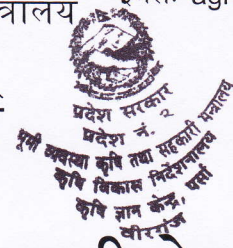 त्रालय
प्रदेश सरकार
प्रदेश नं. २
भूमी व्यवस्था कृषि तथा सहकारी मन्त्रालय
कृषि विकास निर्देशनालय
कृषि ज्ञान केन्द्र, पर्सा
वीरगंज